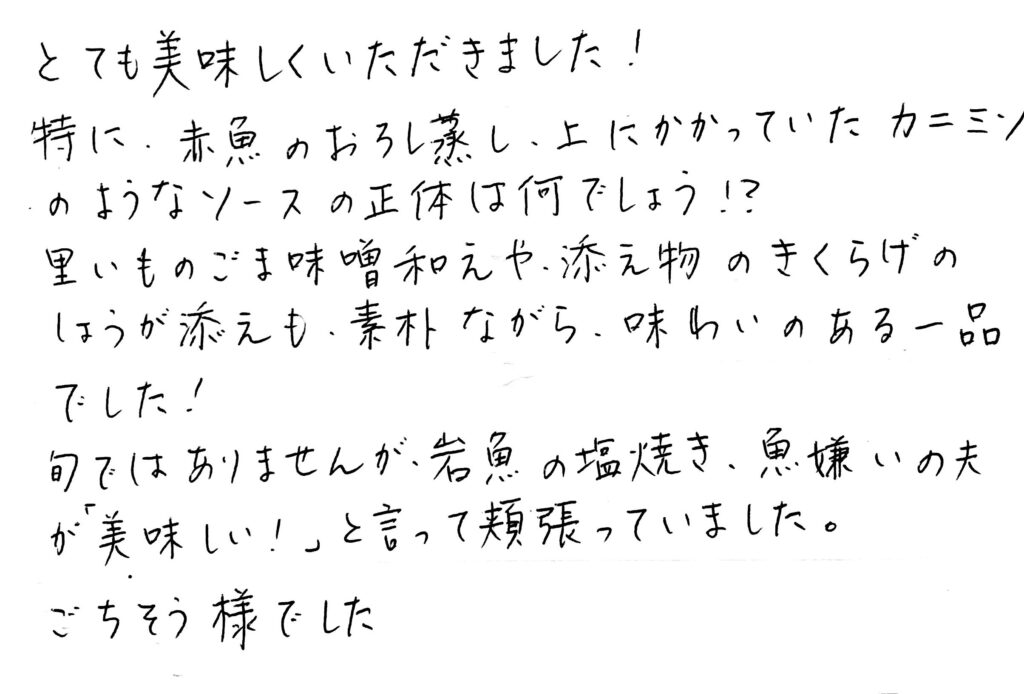 とても美味しくいただきました！
特に、赤魚のおろし蒸し、上にかかっていたカニミソ
のようなソースの正体は何でしょう！？
里いものごま味噌和えや、添え物のきくらげの
しょうが添えも、素朴ながら、味わいのある一品
でした！
旬ではありませんが、岩魚の塩焼き、魚嫌いの夫
が「美味しい！」と言って頬張っていました。
ごちそう様でした